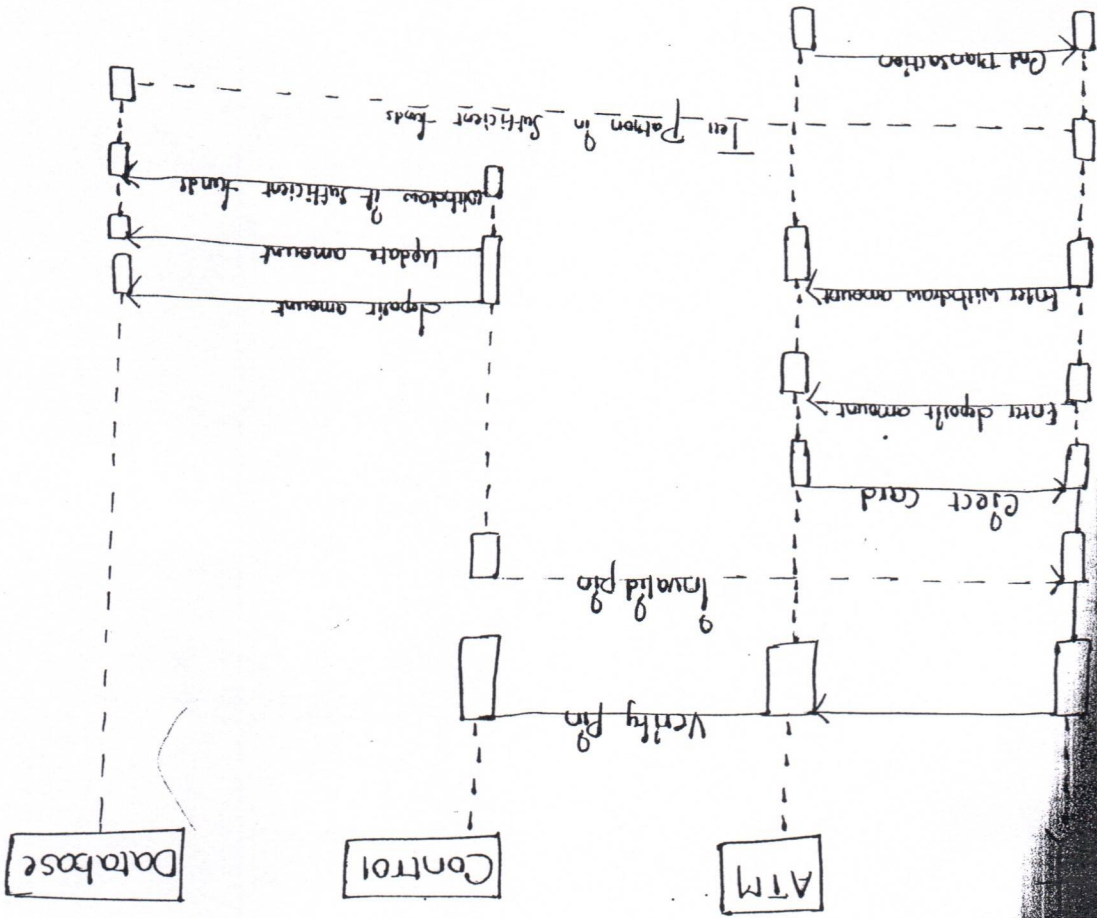 ATM
Control
Database
Verify Pin
Invalid pin
Eject Card
Enter deposit amount
Enter withdraw amount
deposit amount
update amount
withdraw if sufficient funds
Tell Patron in sufficient funds
End Transaction